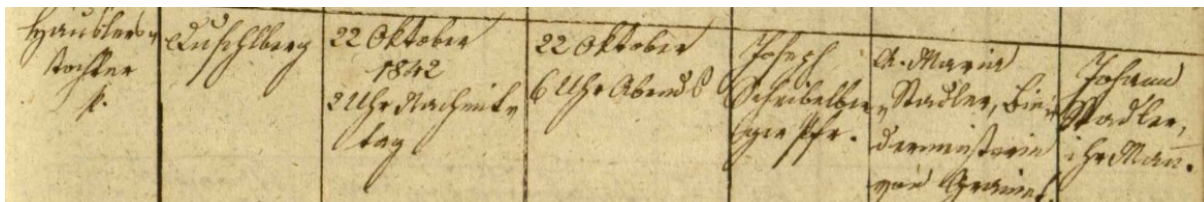 Häuslers-
tochter
k.
Duschlberg
22 Oktober
1842
2 Uhr Nachmit-
tag
22 Oktober
6 Uhr Abends
Joseph
Scheibelber-
ger Pfr.
A. Maria
Stadler, Bin-
dermeisterin
von Grainet
Johann
Stadler,
ihr Man.